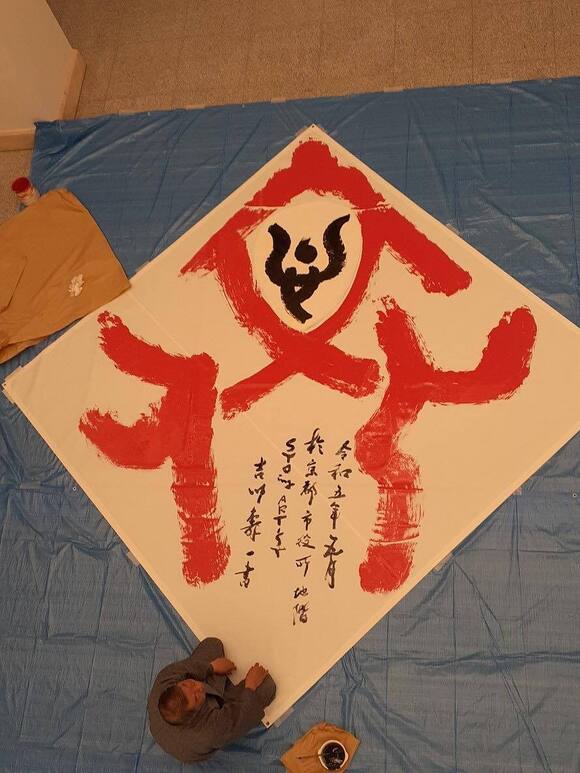 令和五年元月
於京都市役所地階
SYOing ARTIST
吉川壽一書